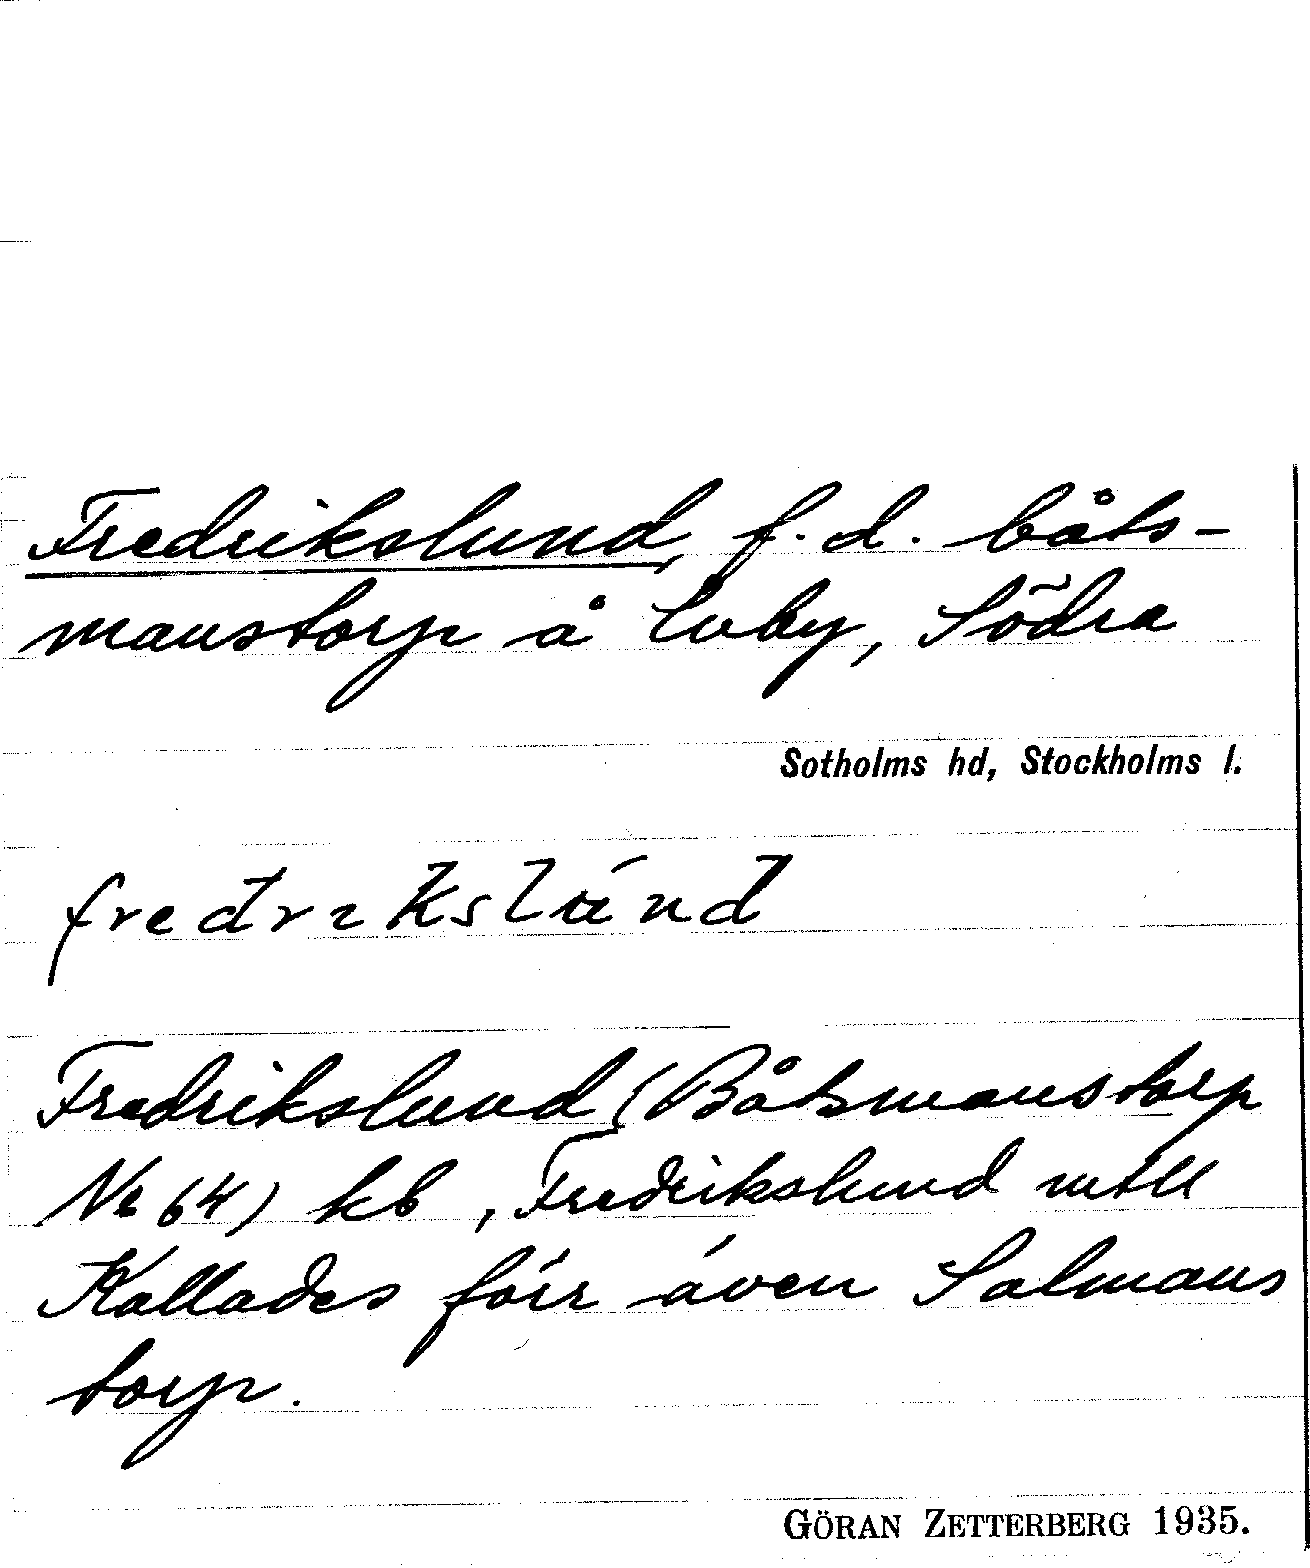 Fredrikslund, f.d. båts-
manstorp å Evby, Södra
Sotholms hd, Stockholms l.
fredrikslund
Fredrikslund (Båtsmanstorp
No 64) kb, Fredrikslund mtll
Kallades förr även Salmans
torp.
GÖRAN ZETTERBERG 1935.